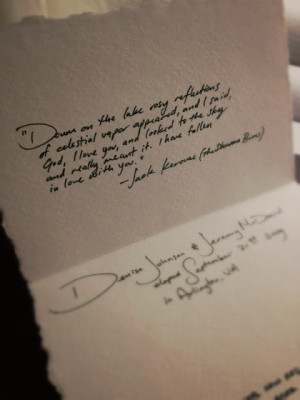 "Down on the lake rosy reflections
of celestial vapor appeared, and I said,
God, I love you, and looked to the sky
and really meant it. I have fallen
in love with you."
-Jack Kerouac (the Dharma Bums)
Denise Johnson & Jeremy McDavid
eloped September 21st 2009
in Arlington, VA